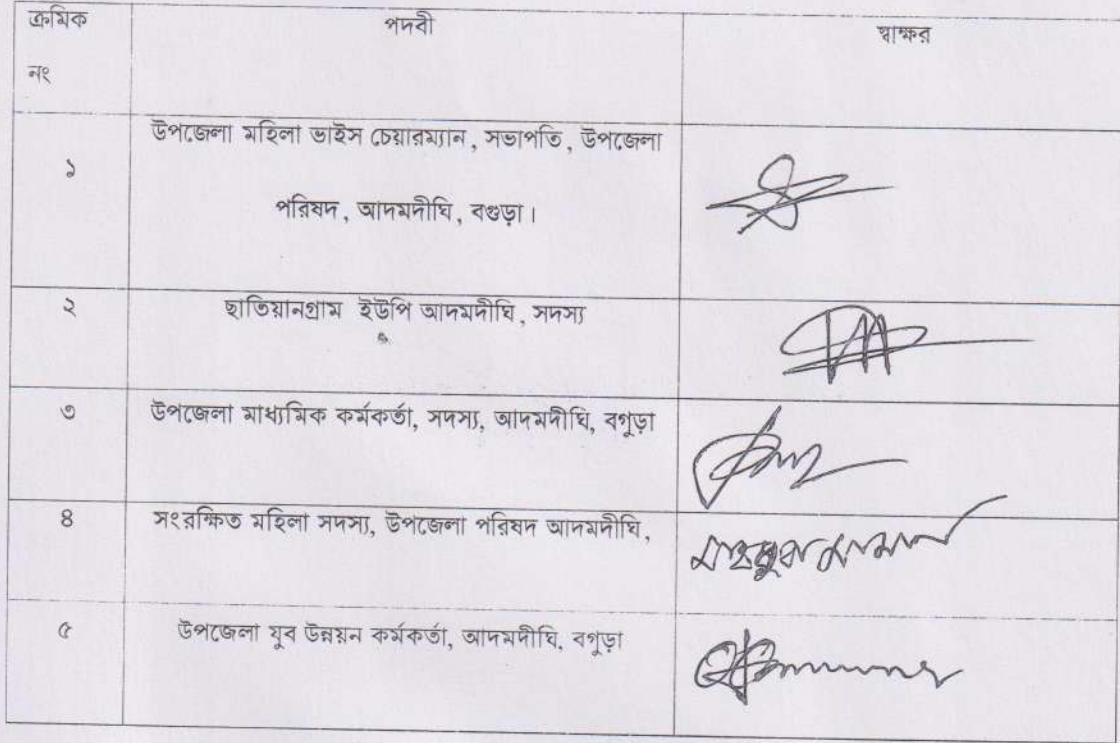 ক্রমিক নং পদবী স্বাক্ষর
উপজেলা মহিলা ভাইস চেয়ারম্যান, সভাপতি, উপজেলা
১
পরিষদ, আদমদীঘি, বগুড়া।
২ ছাতিয়ানগ্রাম ইউপি আদমদীঘি, সদস্য
৩ উপজেলা মাধ্যমিক কর্মকর্তা, সদস্য, আদমদীঘি, বগুড়া
৪ সংরক্ষিত মহিলা সদস্য, উপজেলা পরিষদ আদমদীঘি,
৫ উপজেলা যুব উন্নয়ন কর্মকর্তা, আদমদীঘি, বগুড়া